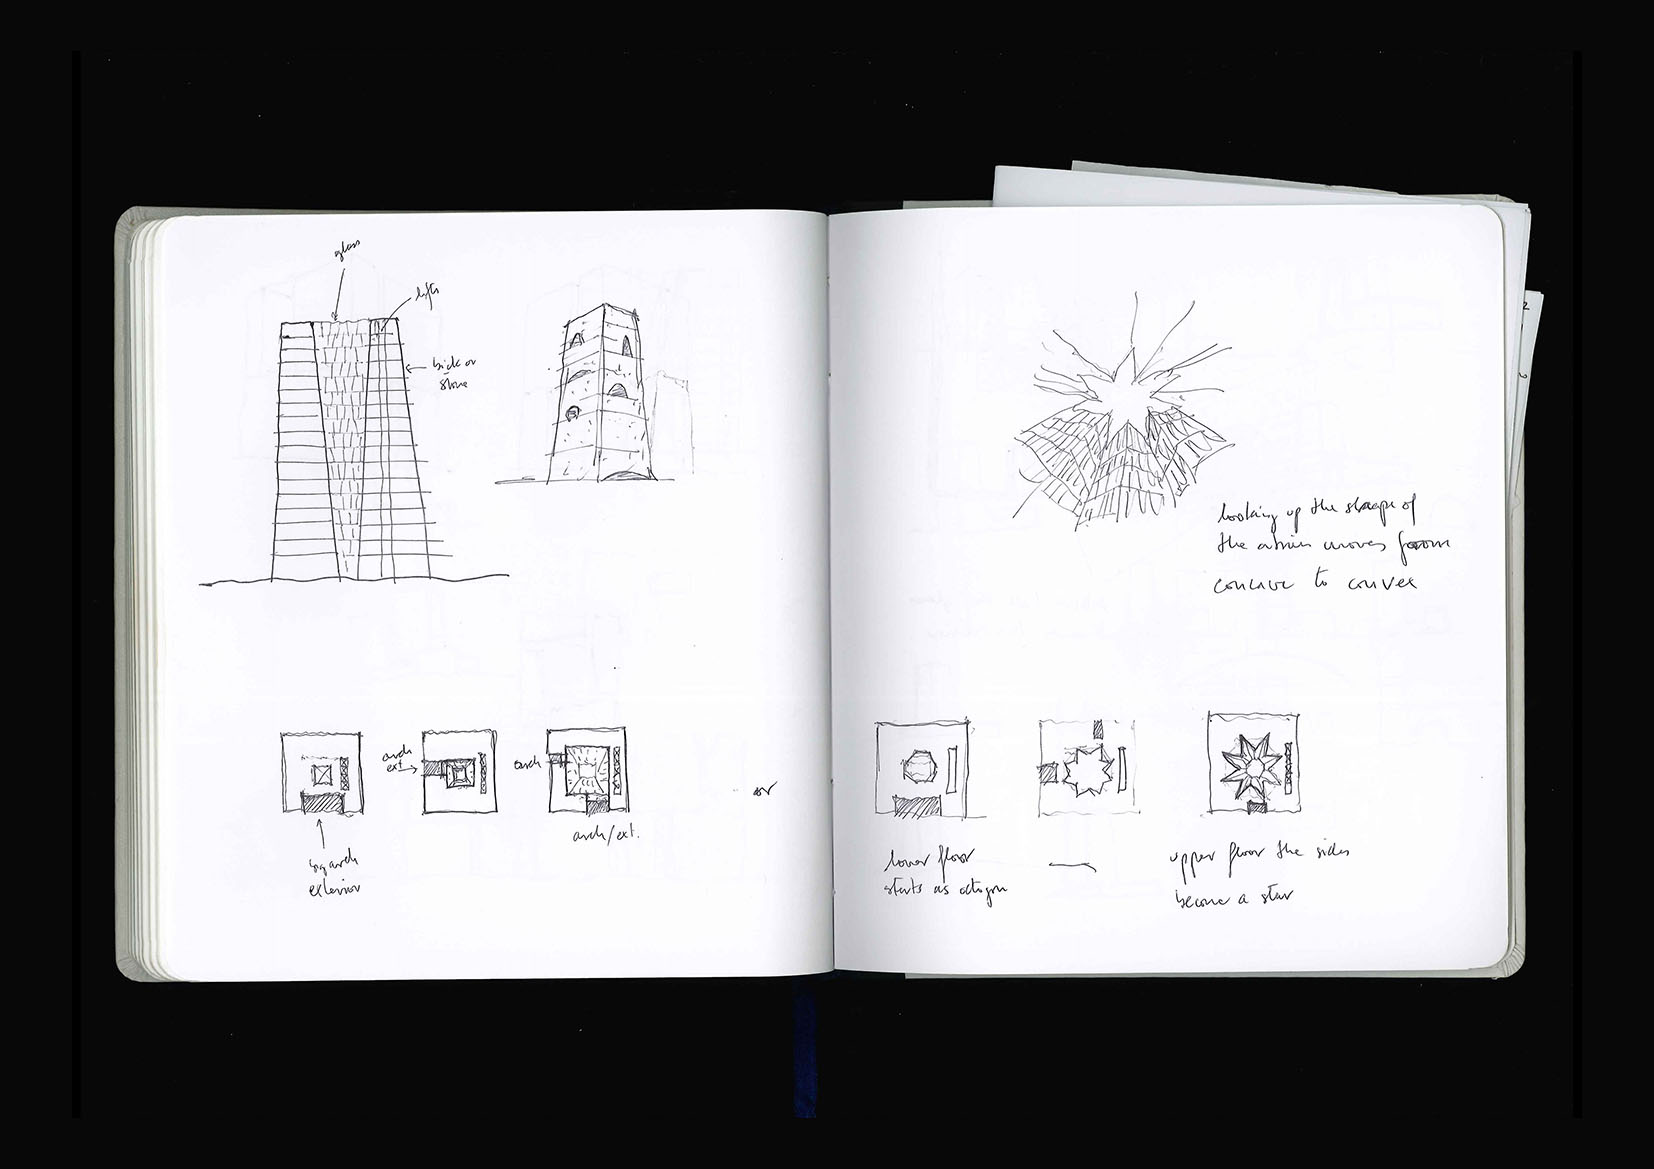 glass
lifts
brick or
stone
arch
ext
arch
arch/ext.
big arch
exterior
or
looking up the shape of
the atrium moves from
concave to convex
lower floor
starts as octogon
upper floor the sides
become a star